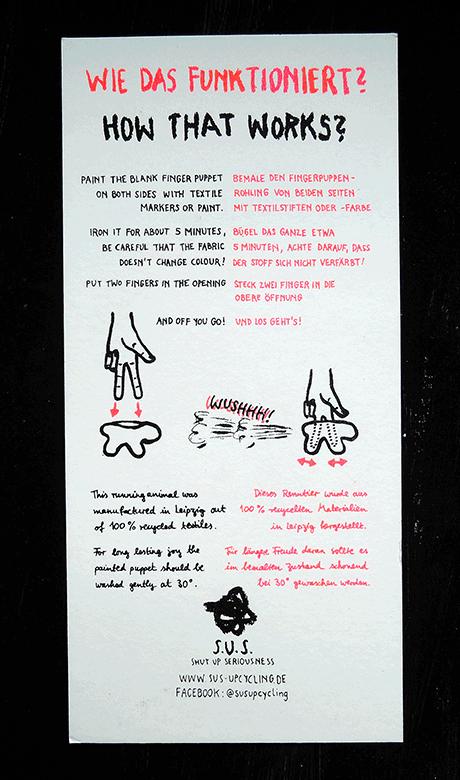 WIE DAS FUNKTIONIERT?
HOW THAT WORKS?
PAINT THE BLANK FINGER PUPPET
ON BOTH SIDES WITH TEXTILE
MARKERS OR PAINT.
BEMALE DEN FINGERPUPPEN-
ROHLING VON BEIDEN SEITEN
MIT TEXTILSTIFTEN ODER -FARBE
IRON IT FOR ABOUT 5 MINUTES,
BE CAREFUL THAT THE FABRIC
DOESN'T CHANGE COLOUR!
BÜGEL DAS GANZE ETWA
5 MINUTEN, ACHTE DARAUF, DASS
DER STOFF SICH NICHT VERFÄRBT!
PUT TWO FINGERS IN THE OPENING
STECK ZWEI FINGER IN DIE
OBERE ÖFFNUNG
AND OFF YOU GO!
UND LOS GEHT'S!
WUSHHH!
This running animal was
manufactured in Leipzig out
of 100% recycled textiles.
Dieses Renntier wurde aus
100% recycelten Materialien
in Leipzig hergestellt.
For long lasting joy the
painted puppet should be
washed gently at 30°.
Für längere Freude daran sollte es
im bemalten Zustand schonend
bei 30° gewaschen werden.
S.U.S.
SHUT UP SERIOUSNESS
WWW.SUS-UPCYCLING.DE
FACEBOOK: @susupcycling